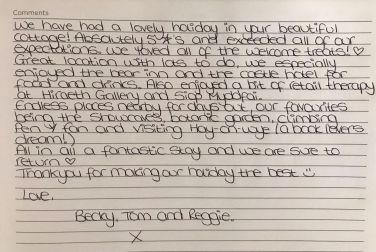 Comments
We have had a lovely holiday in your beautiful
cottage! Absolutely 5*'s and exceeded all of our
expectations. We loved all of the welcome treats! ♡
Great location with lots to do, we especially
enjoyed the bear inn and the castle hotel for
food and drinks. Also enjoyed a bit of retail therapy
at Hiraeth Gallery and Siop
Endless places nearby for days out, our favourites
being the showcaves, botanic garden, climbing
Pen y fan and visiting Hay-on-wye (a book lovers
dream!)
All in all a fantastic stay and we are sure to
return ♡
Thankyou for making our holiday the best ☺
Love,
Becky, Tom and Reggie.
X